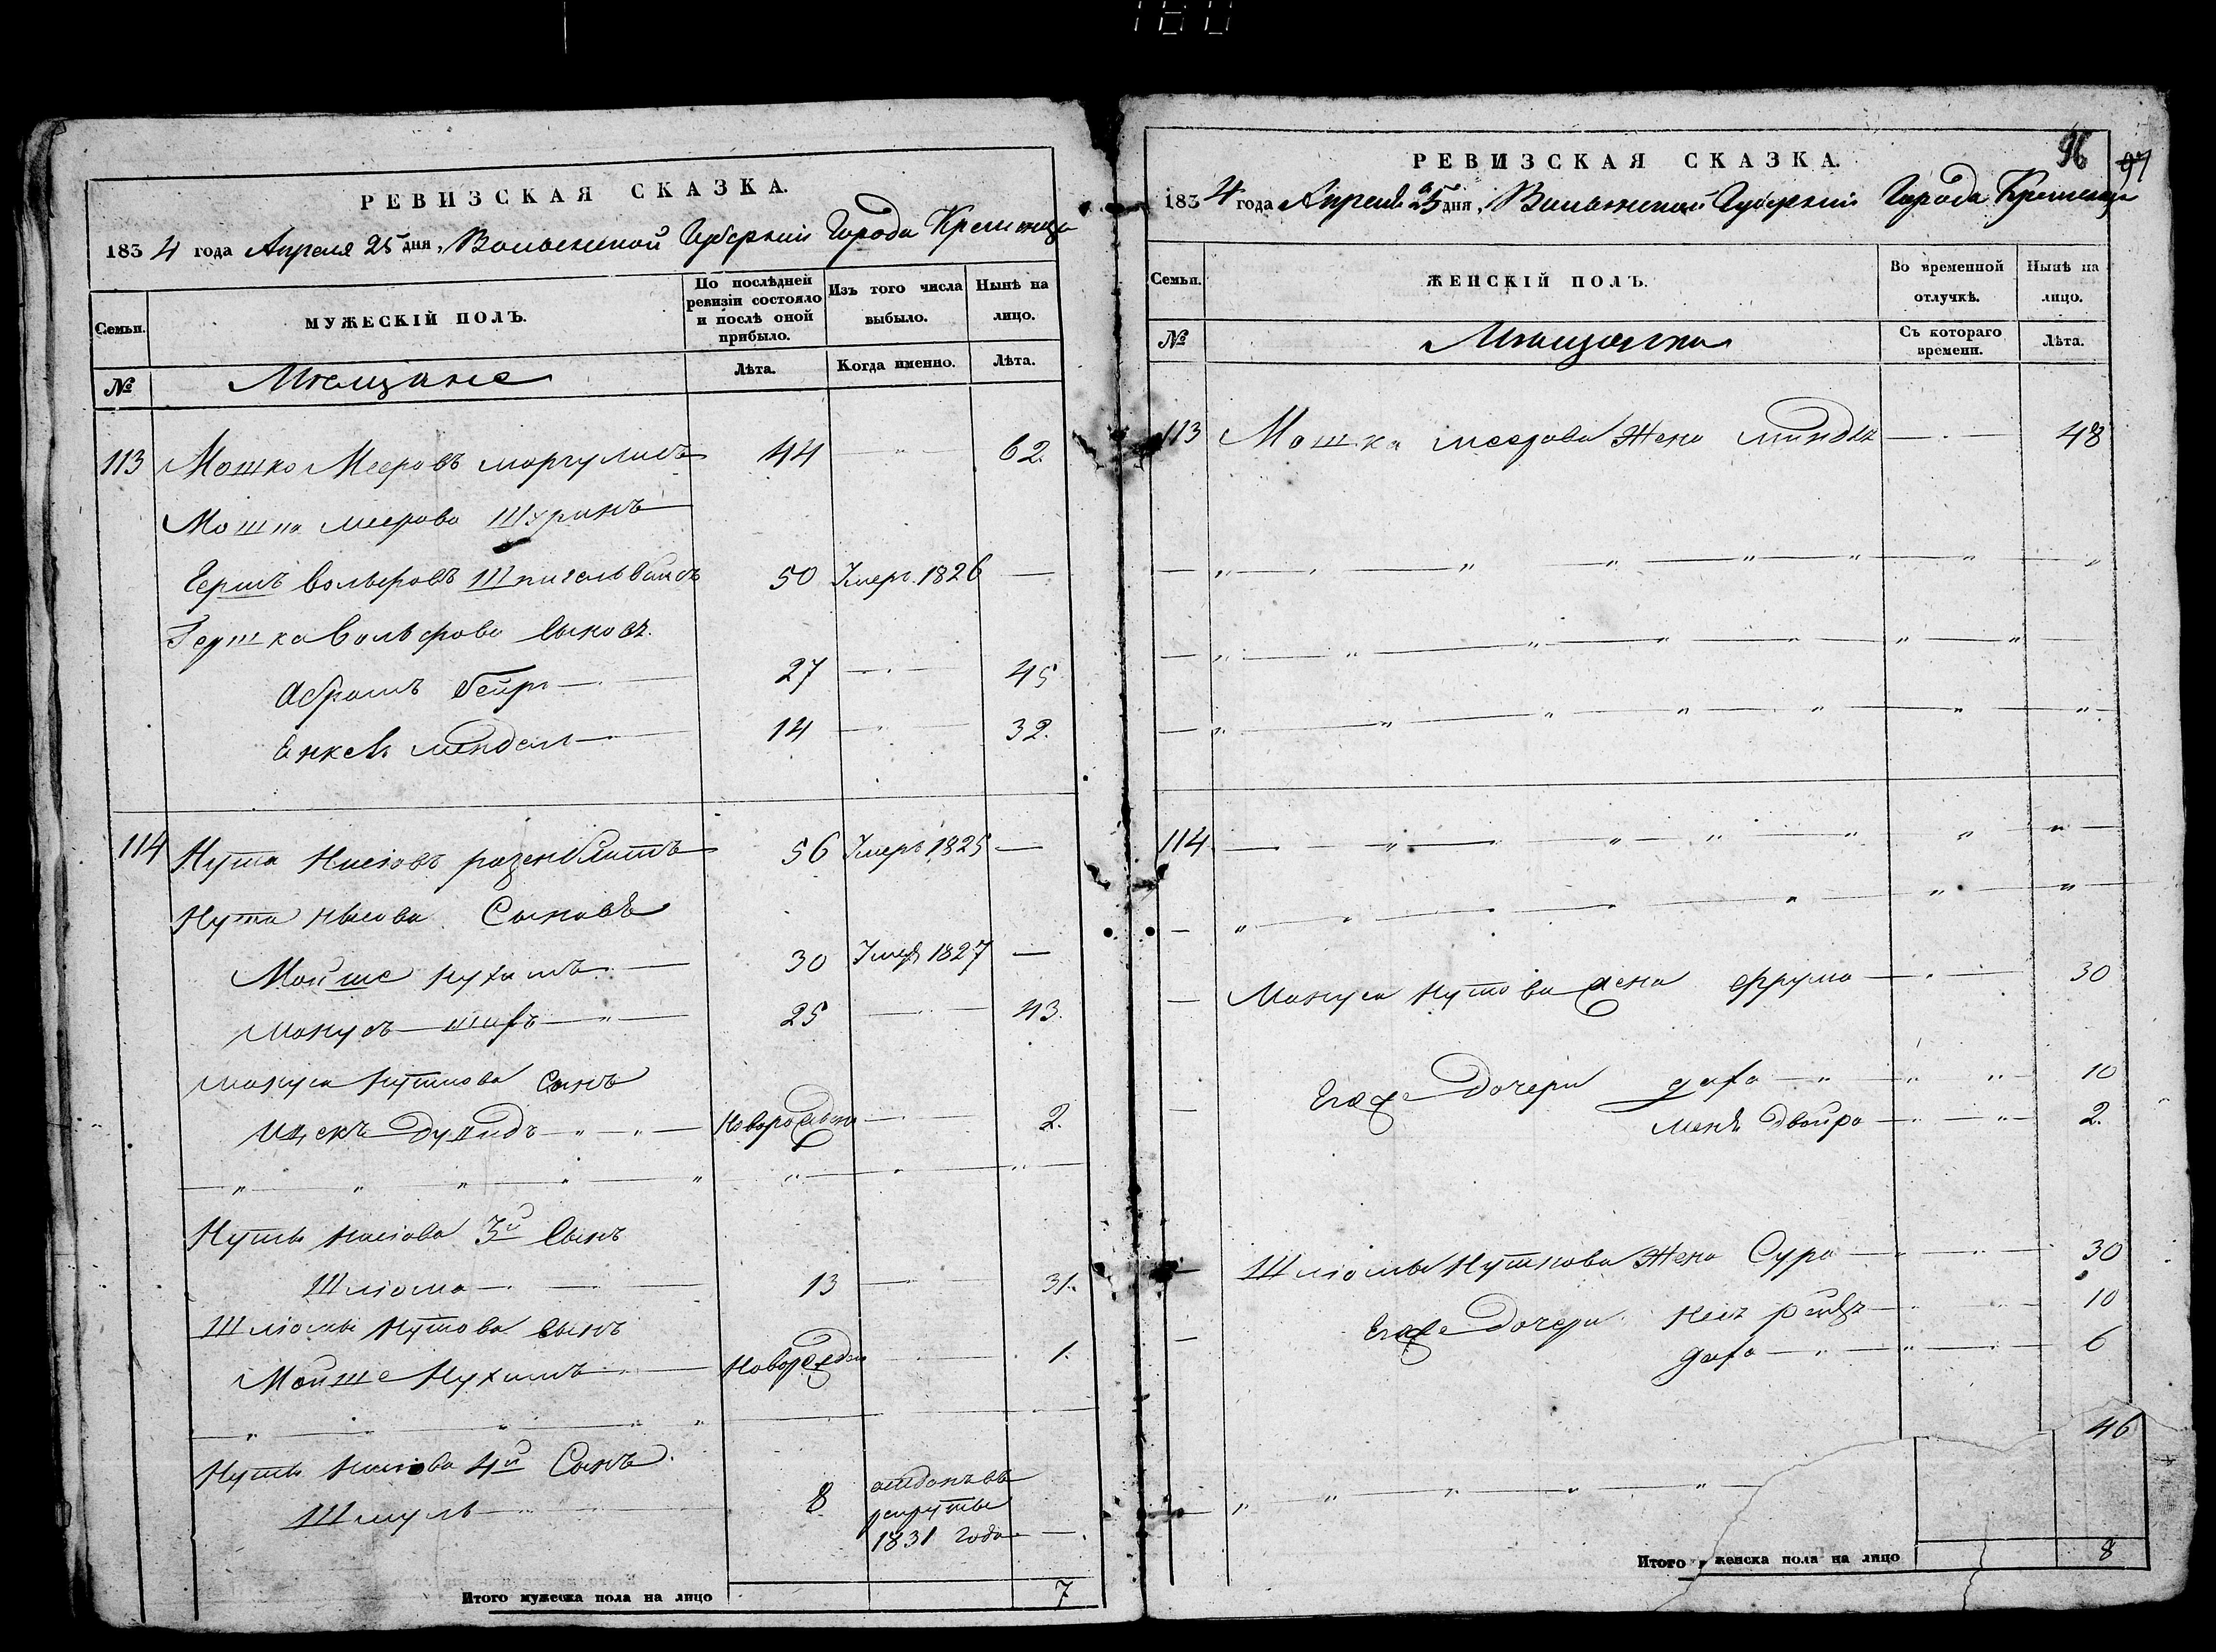 180
РЕВИЗСКАЯ СКАЗКА.
1834 года Апреля 25 дня, Волынской Губерніи Города Кременца
Семьи.
МУЖЕСКІЙ ПОЛЪ.
По послѣдней ревизіи состояло и послѣ оной прибыло.
Изъ того числа выбыло.
Нынѣ на лицо.
№
Мѣщане
Лѣта.
Когда именно.
Лѣта.
113 Мошко Мееровъ маргулисъ 44 — " — 62.
Мошка меерова Шуринъ
Гершъ вольфовъ Шпигельваисъ 50 Умеръ. 1826 —
Гершка Вольфова сыновя.
Абрамъ беиръ 27 — 45
Енкель мендель 14 — 32.
114 Нута Нисіовъ розенблитъ 56 Умеръ 1825 —
Нута нысова Сыновя
Мойше нухимъ 30 Умеръ 1827 —
Манусъ — " — 25 — 43.
мануса нутиова Сынъ
Ицекъ Дувидъ — " — " — Новорожден — 2.
— " — " — " — " — " — " — " — "
Нуты нисіова 3й Сынъ
Шліома — 13 — 31.
Шліомы Нутова сынъ
Мойше Нухимъ — Новорожден — 1.
— " — " — " — " — "
Нуты нисіова 4й Сынъ.
Шмуль — 8 отданъ въ
рекруты
1831 года —.
Итого мужеска пола на лицо 7
96 97
РЕВИЗСКАЯ СКАЗКА.
1834 года Апреля 25 дня, Волынской Губерніи Города Кременца
Семьи.
ЖЕНСКІЙ ПОЛЪ.
Во временной отлучкѣ.
Нынѣ на лицо.
№
Мѣщанки
Съ котораго времени.
Лѣта.
113 Мошка меерова Жена миндля — . — 48
— " — " — " — " — " — "
— " — " — " — " — " — " — " —
— " — " — " — " — " — " — "
114 — " — " — " — " — " — " — " —
— " — " — " — " — " — " — "
— Мануса Нутова жена фрума — . — 30
— Егоже Дочери хая — " — " — " 10
меня Двойра — " — " — 2.
— Шліомы Нутиова Жена Сура — " — 30
— Егоже Дочери Нехъ рейзя — 10
хая — " — " — 6
46
— " — " — " — " — " —
Итого женска пола на лицо 8